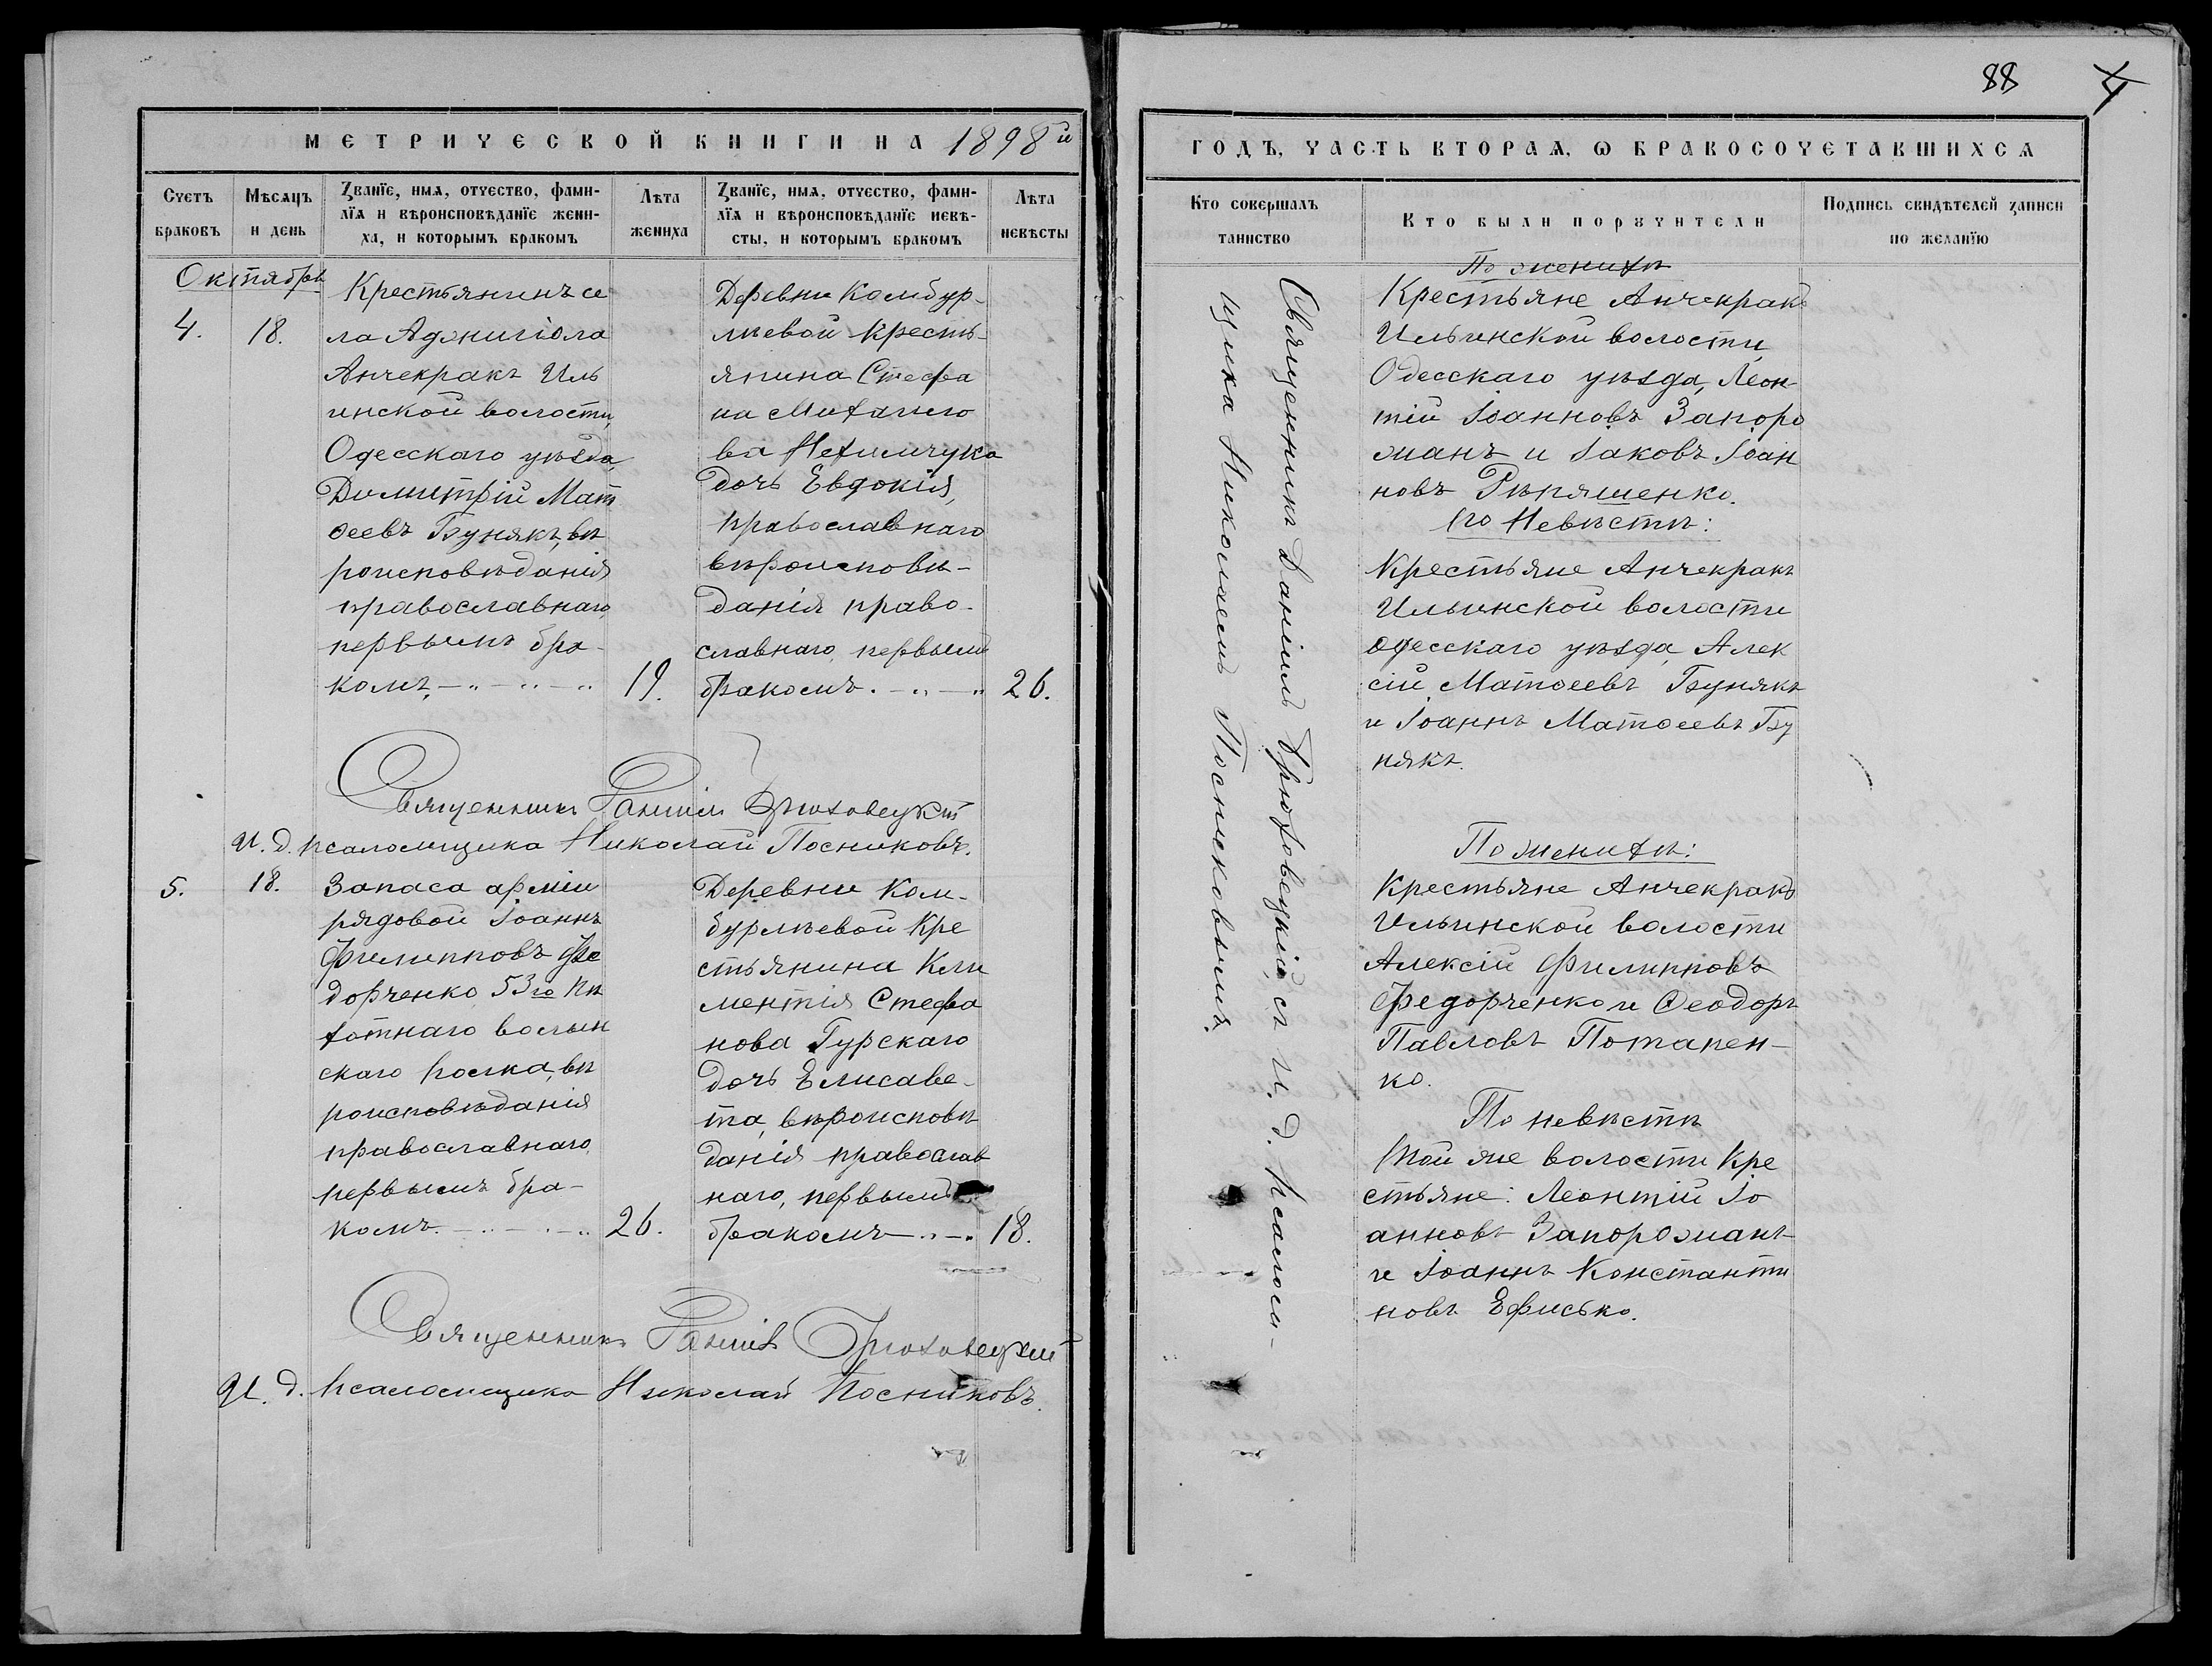 МЕТРИЧЕСКОЙ КНИГИ НА 1898й
Счетъ браковъ
Мѣсяцъ и день
Званїе, имя, отчество, фами-
лїя и вѣроисповѣданїе жени-
ха, и которымъ бракомъ
Лѣта жениха
Званїе, имя, отчество, фами-
лїя и вѣроисповѣданїе невѣ-
сты, и которымъ бракомъ
Лѣта невѣсты
Октябрь
4.
18.
Крестьянинъ се
ла Аджигіола
Анчекракъ Иль
инской волости,
Одесскаго уѣзда,
Димитрій Мат
ѳеевъ Бунякъ, вѣ
роисповѣданія
православнаго,
первымъ бра-
комъ.
19.
Деревни Комбур-
лѣевой кресть-
янина Стефа
на Михайло
ва Нехимчука
дочь Евдокія,
православнаго
вѣроисповѣ-
данія право-
славнаго, первымъ
бракомъ.
26.
Священникъ Даніилъ Брюховецкій
И. д. псаломщика Николай Посниковъ.
5.
18.
Запаса арміи
рядовой Іоаннъ
Филипповъ Фе
дорченко 53го пѣ
хотнаго волын
скаго полка, вѣ
роисповѣданія
православнаго,
первымъ бра-
комъ.
26.
Деревни Ком-
бурлѣевой кре
стьянина Кли
ментія Стефа
нова Гурскаго
дочь Елисаве-
та, вѣроисповѣ
данія православ
наго, первымъ
бракомъ
18.
Священникъ Даніилъ Брюховецкій
И. д. псаломщика Николай Посниковъ.
88
4
ГОДЪ, ЧАСТЬ ВТОРАЯ, Ѡ БРАКОСОЧЕТАВШИХСЯ
Кто совершалъ таинство
Кто были порꙋчители
Подпись свидѣтелей записи по желанїю
Священникъ Даніилъ Брюховецкій, съ и. д. псалом-
щика Николаемъ Посниковымъ.
По женихѣ
Крестьяне Анчекракъ
Ильинской волости,
Одесскаго уѣзда, Леон
тій Іоанновъ Запоро
жанъ и Іаковъ Іоан
новъ Рѣпяшенко.
По Невѣстѣ:
Крестьяне Анчекракъ
Ильинской волости
Одесскаго уѣзда, Алек
сій Матѳеевъ Бунякъ
и Іоаннъ Матѳеевъ Бу
някъ.
По женихѣ:
Крестьяне Анчекракъ
Ильинской волости
Алексій Филипповъ
Федорченко и Ѳеодоръ
Павловъ Потапен-
ко.
По невѣстѣ
Той же волости кре
стьяне: Леонтій Іо
анновъ Запорожанъ
и Іоаннъ Константи
новъ Ефисько.